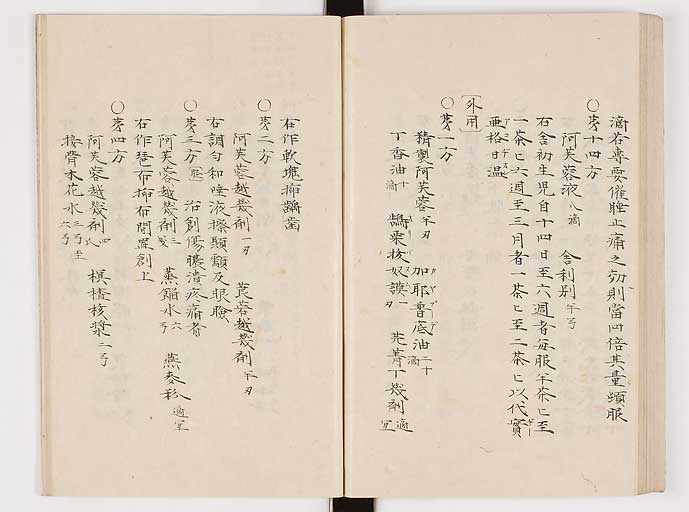 滴若專要催睡止痛之効則當四倍其量頓服
○第十四方
阿芙蓉液八滴 舍利別半弓
右舍初生児自十四日至六週者每服半茶匕至
一茶匕六週至三月者一茶匕至二茶匕以代實
亜格日温
〔外用〕
○第一方
精製阿芙蓉半刄 加耶普底油二十滴
丁香油十滴 鸎粟抜奴謨一刄 芫菁丁幾剤適宜
右作軟塊挿齲歯
○第二方
阿芙蓉越幾剤一刄 莨菪越幾剤半刄
右調匀和唾液擦顳顬及眼瞼
○第三方 治創傷膿潰疼痛者
阿芙蓉越幾剤三 蒸餾水六弓 燕麥粉適宜
右作琶布挿布間置創上
○第四方
阿芙蓉越幾剤四氏 榠樝核漿二弓
接骨木花水三弓至六弓